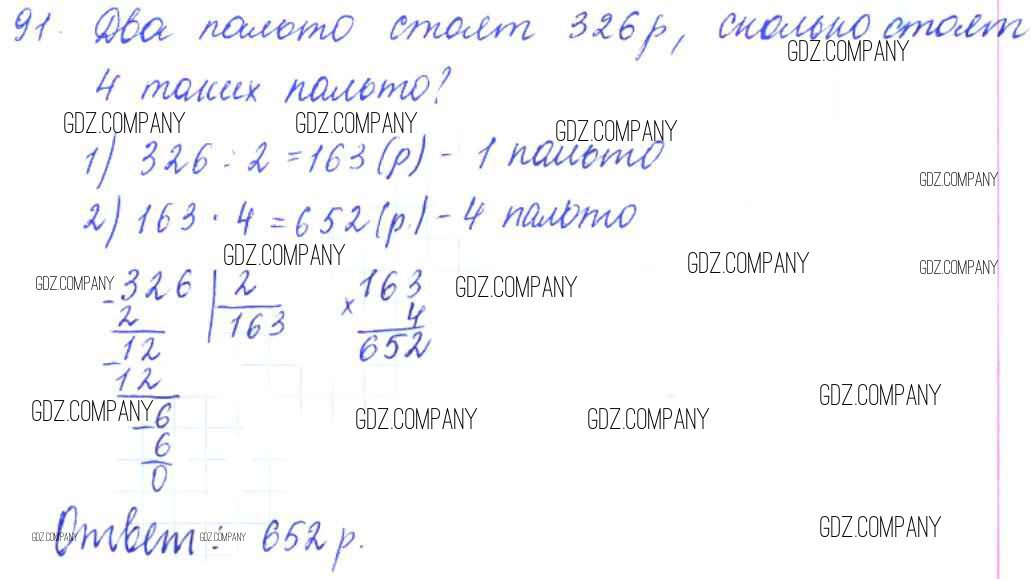 91. Два пальто стоят 326 р, сколько стоят
GDZ.COMPANY
4 таких пальто?
GDZ.COMPANY GDZ.COMPANY GDZ.COMPANY
1) 326 : 2 = 163 (р) - 1 пальто
GDZ.COMPANY
2) 163 · 4 = 652 (р.) - 4 пальто
GDZ.COMPANY GDZ.COMPANY GDZ.COMPANY
GDZ.COMPANY GDZ.COMPANY
- 326 | 2 × 163
2 163 4
- 12 652
12
GDZ.COMPANY GDZ.COMPANY GDZ.COMPANY GDZ.COMPANY
- 6
6
0
GDZ.COMPANY GDZ.COMPANY GDZ.COMPANY
Ответ: 652 р.